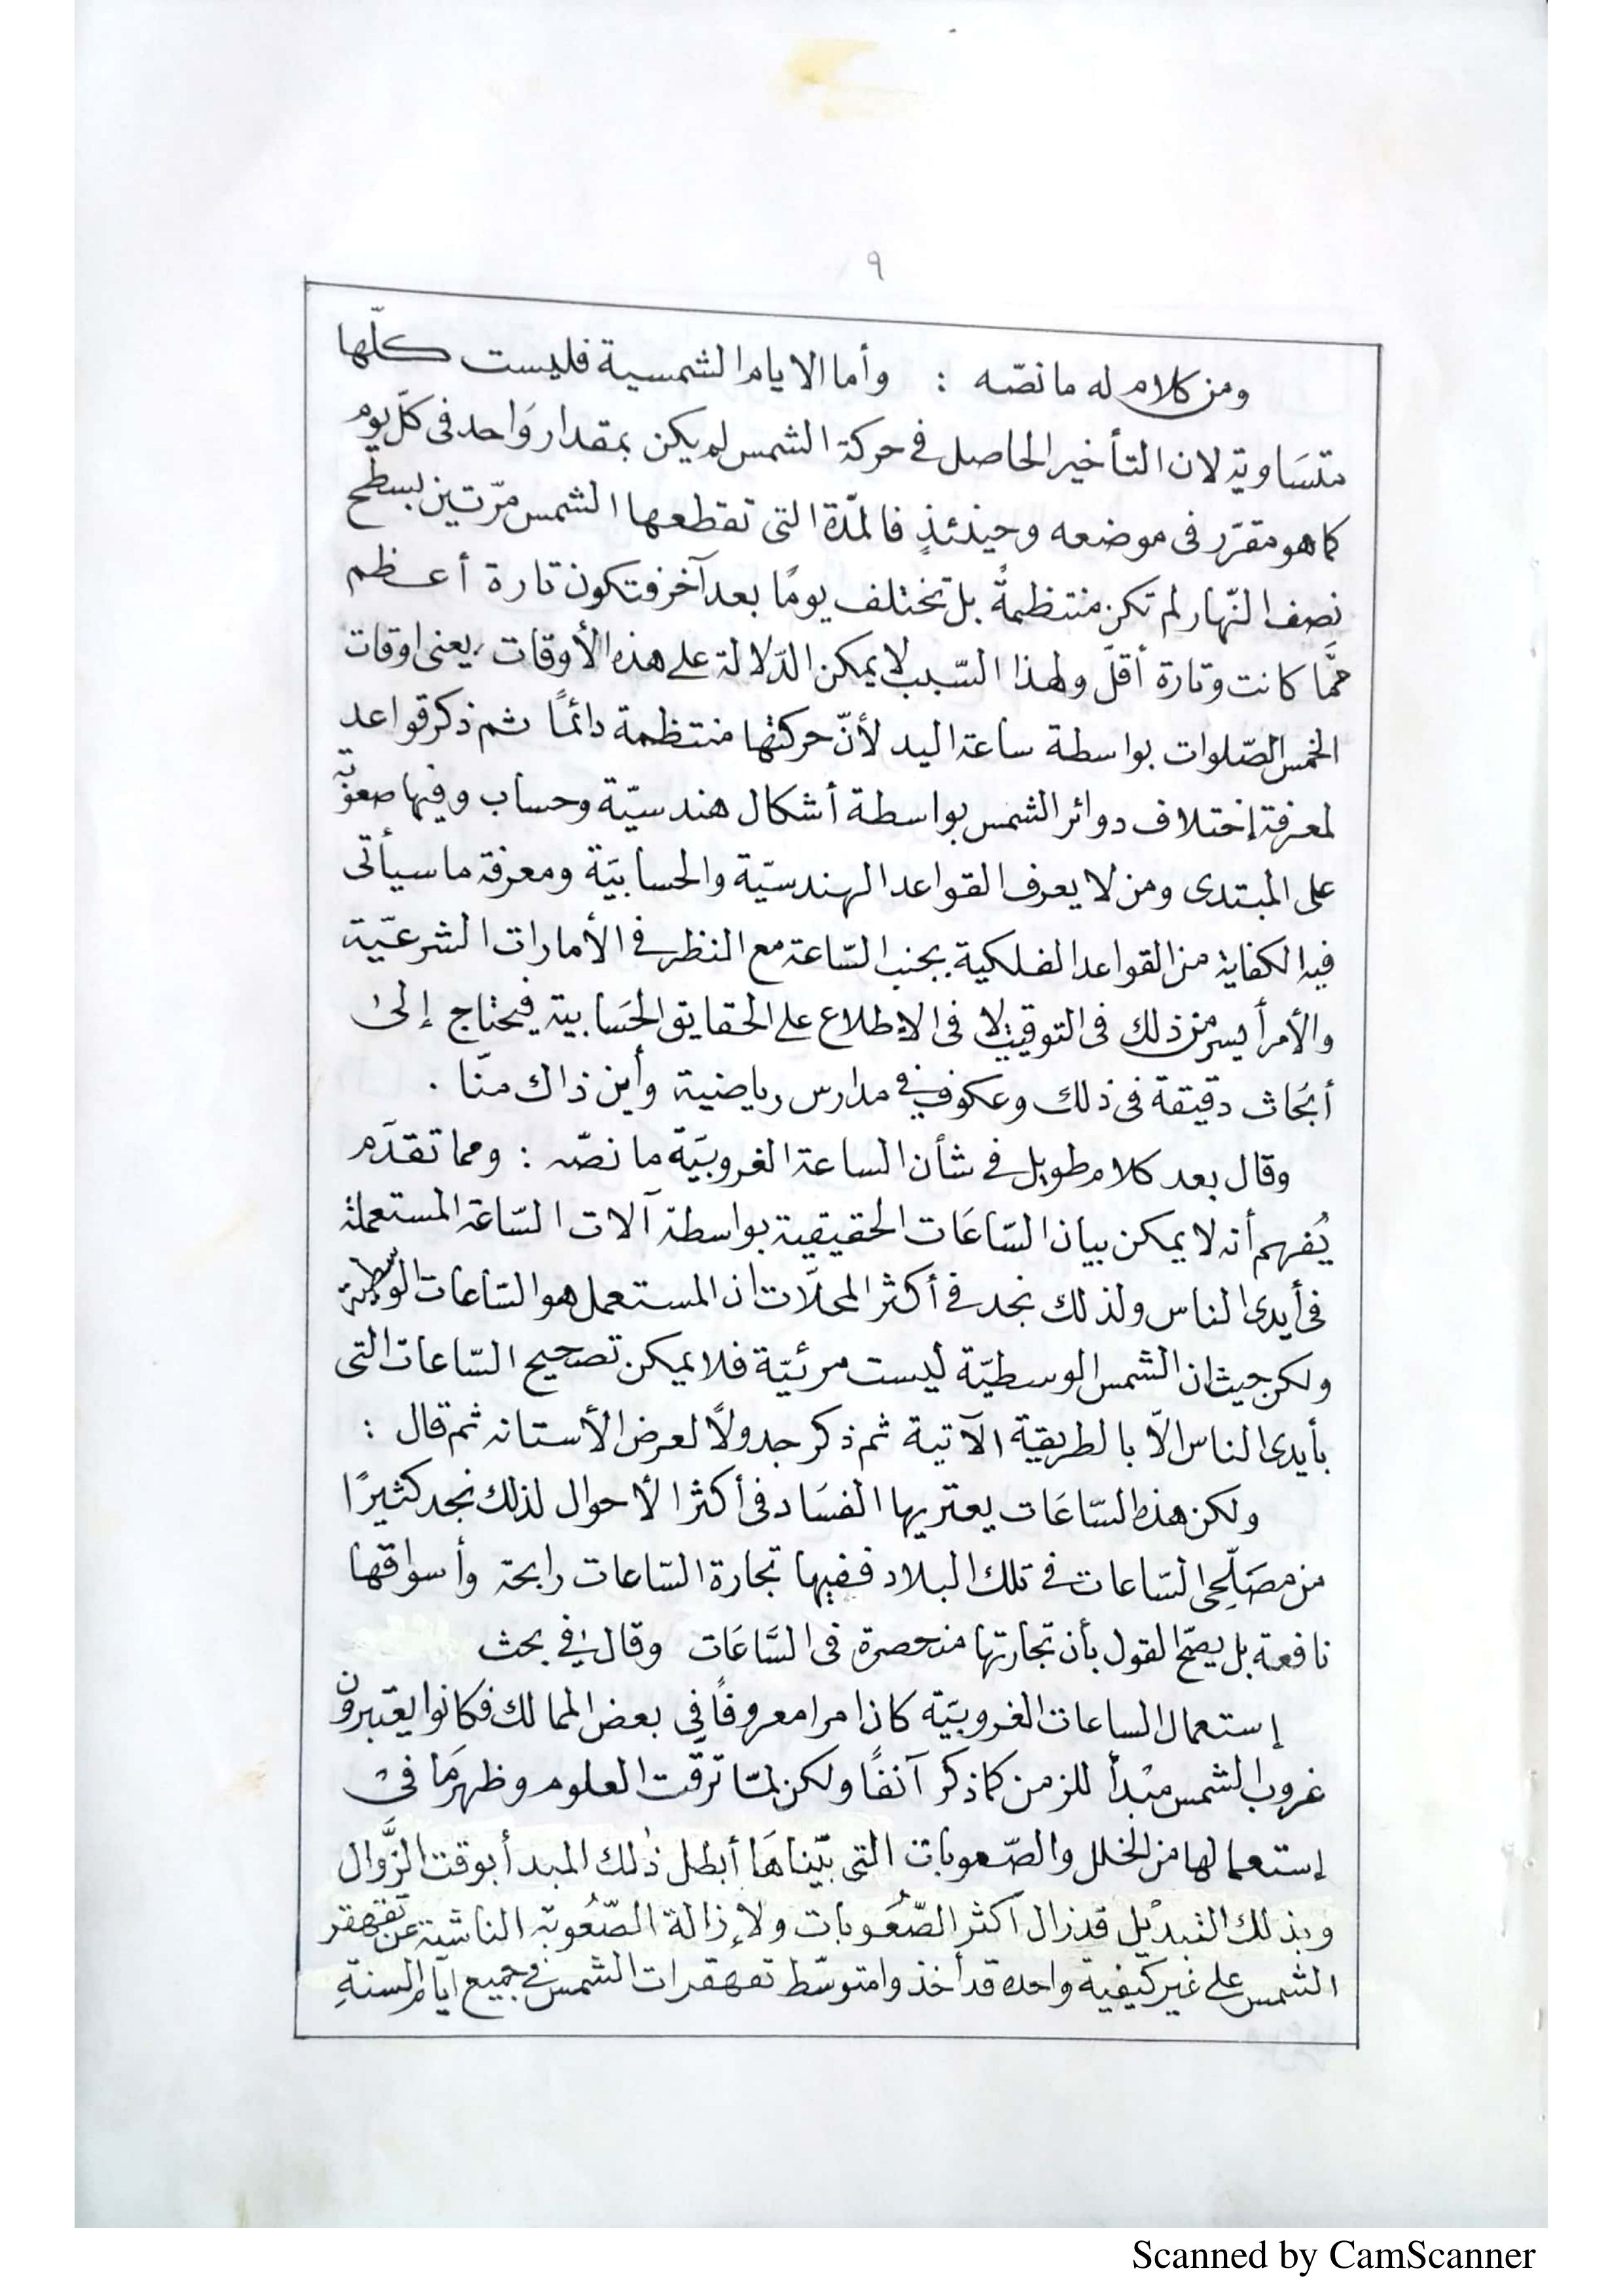 ٩
ومن كلام له ما نصّه : وأما الايام الشمسية فليست كلّها
متسَاوية لان التأخير الحاصل في حركة الشمس لم يكن بمقدار وَاحد فى كلّ يوم
كما هو مقرّر فى موضعه وحينئذٍ فالمدّة التى تقطعها الشمس مرّتين بسطح
نِصف النّهار لم تكن منتظمةً بل تختلف يومًا بعد آخر فتكون تارة أعظم
ممَّا كانت وتارة أقلّ ولهذا السّبب لا يمكن الدّلالة على هذه الأوقات ، يعنى اوقات
الخمس الصّلوات بواسطة ساعة اليد لأنّ حركتها منتظمة دائمًا ثم ذكر قواعد
لمعرفة إختلاف دوائر الشمس بواسطة أشكال هندسيّة وحساب وفيها صعوبة
على المبتدى ومن لا يعرف القواعد الهندسيّة والحسابيَة ومعرفة ما سيأتى
فيه الكفاية من القواعد الفلكية بجنب السّاعة مع النظر في الأمارات الشرعيّة
والأمر أيسر من ذلك فى التوقيت لا فى الإطلاع على الحقايق الحَسابية فيحتاج إلىٰ
أبحَاث دقيقة فى ذلك وعكوف في مدارس رياضية وأين ذاك منّا .
وقال بعد كلام طويل في شأن الساعة الغروبيَة ما نصّه : ومما تقدَم
يُفهم أنه لا يمكن بيان السّاعَات الحقيقية بواسطة آلات السّاعة المستعملة
فى أيدى الناس ولذلك نجد في أكثر المحلّات ان المستعمل هو السّاعات الوسطية
ولكن حيث ان الشمس الوسطيّة ليست مرئيّة فلا يمكن تصحيح السّاعات التى
بأيدى الناس الّا بالطريقة الآتية ثم ذكر جدولًا لعرض الأستانه ثم قال :
ولكن هذه السّاعَات يعتريها الفسَاد فى أكثر الأحوال لذلك نجد كثيرًا
من مصَلّحِى السّاعات في تلك البلاد ففيها تجارة السّاعات رابحة وأسواقها
نافعة بل يصحّ القول بأن تجارتها منحصرة فى السَّاعَات وقال في بحث
إستعمال الساعات الغروبيَة كان امرا معروفًا في بعض الممالك فكانوا يعتبرون
غروب الشمس مبْدأً للزمن كما ذكر آنفًا ولكن لمّا ترقّت العلوم وظهر مَا فى
إستعمالها من الخلل والصّعوبات التى بيّناهَا أبطل ذٰلك المبدأ بوقت الزَّوال
وبذلك التبديْل قد زال أكثر الصّعُوبات ولإزالة الصّعُوبة الناشئة عن تقهقر
الشمس على غير كيفية واحده قد أخذوا متوسّط تقهقرات الشمس في جميع ايّام السنةِ
Scanned by CamScanner